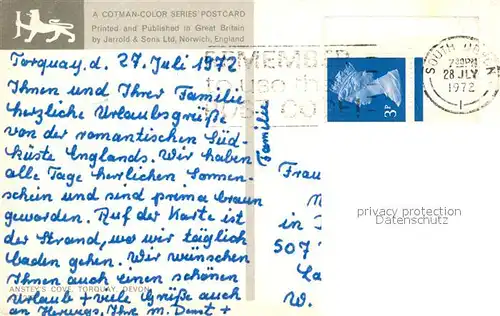 A COTMAN-COLOR SERIES POSTCARD
Printed and Published in Great Britain
by Jarrold & Sons Ltd, Norwich, England
Torquay, d. 27. Juli 1972
Ihnen und Ihrer Familie
herzliche Urlaubsgrüße
von der romantischen Süd-
küste Englands. Wir haben
alle Tage herrlichen Sonnen-
schein und sind prima braun
geworden. Auf der Karte ist
der Strand, wo wir täglich
baden gehen. Wir wünschen
Ihnen auch einen schönen
ANSTEY'S COVE, TORQUAY, DEVON
Urlaub + viele Grüße auch
an Ihre M.
Familie
REMEMBER
to use the
SOUTH DEVON
28 JLY
1972
3P
Frau
in
507
W.
privacy protection
DATENSCHUTZ